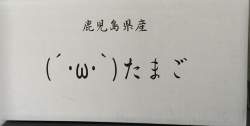 鹿児島県産
(´･ω･`)たまご